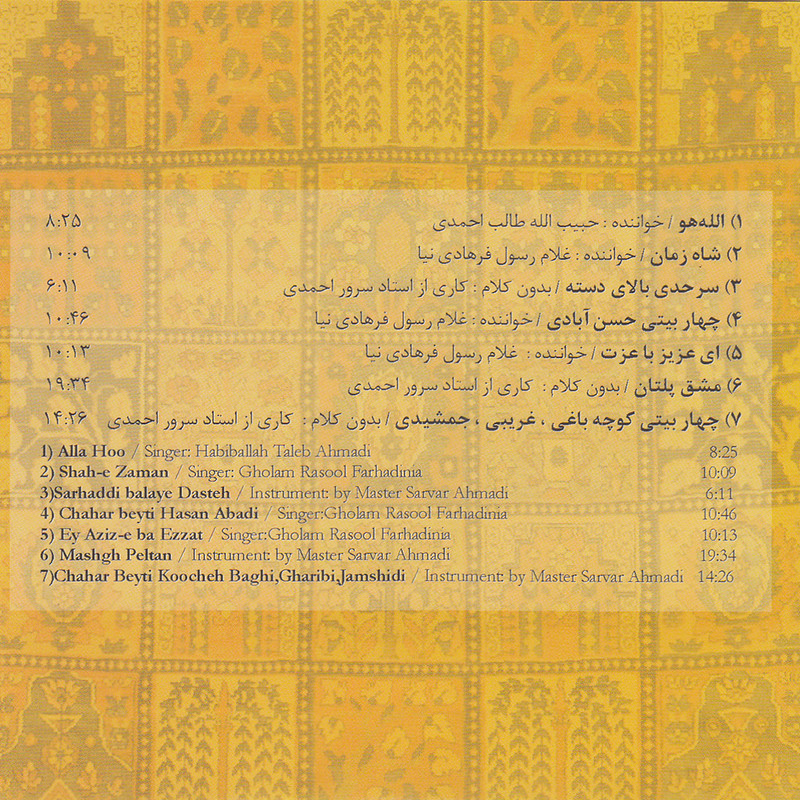 ۱) الله‌هو / خواننده : حبیب الله طالب احمدی ۸:۲۵
۲) شاه زمان / خواننده : غلام رسول فرهادی نیا ۱۰:۰۹
۳) سرحدی بالای دسته / بدون کلام : کاری از استاد سرور احمدی ۶:۱۱
۴) چهار بیتی حسن آبادی / خواننده : غلام رسول فرهادی نیا ۱۰:۴۶
۵) ای عزیز با عزت / خواننده : غلام رسول فرهادی نیا ۱۰:۱۳
۶) مشق پلتان / بدون کلام : کاری از استاد سرور احمدی ۱۹:۳۴
۷) چهار بیتی کوچه باغی ، غریبی ، جمشیدی / بدون کلام : کاری از استاد سرور احمدی ۱۴:۲۶
1) Alla Hoo / Singer: Habiballah Taleb Ahmadi 8:25
2) Shah-e Zaman / Singer: Gholam Rasool Farhadinia 10:09
3)Sarhaddi balaye Dasteh / Instrument: by Master Sarvar Ahmadi 6:11
4) Chahar beyti Hasan Abadi / Singer:Gholam Rasool Farhadinia 10:46
5) Ey Aziz-e ba Ezzat / Singer:Gholam Rasool Farhadinia 10:13
6) Mashgh Peltan / Instrument: by Master Sarvar Ahmadi 19:34
7)Chahar Beyti Koocheh Baghi,Gharibi,Jamshidi / Instrument: by Master Sarvar Ahmadi 14:26